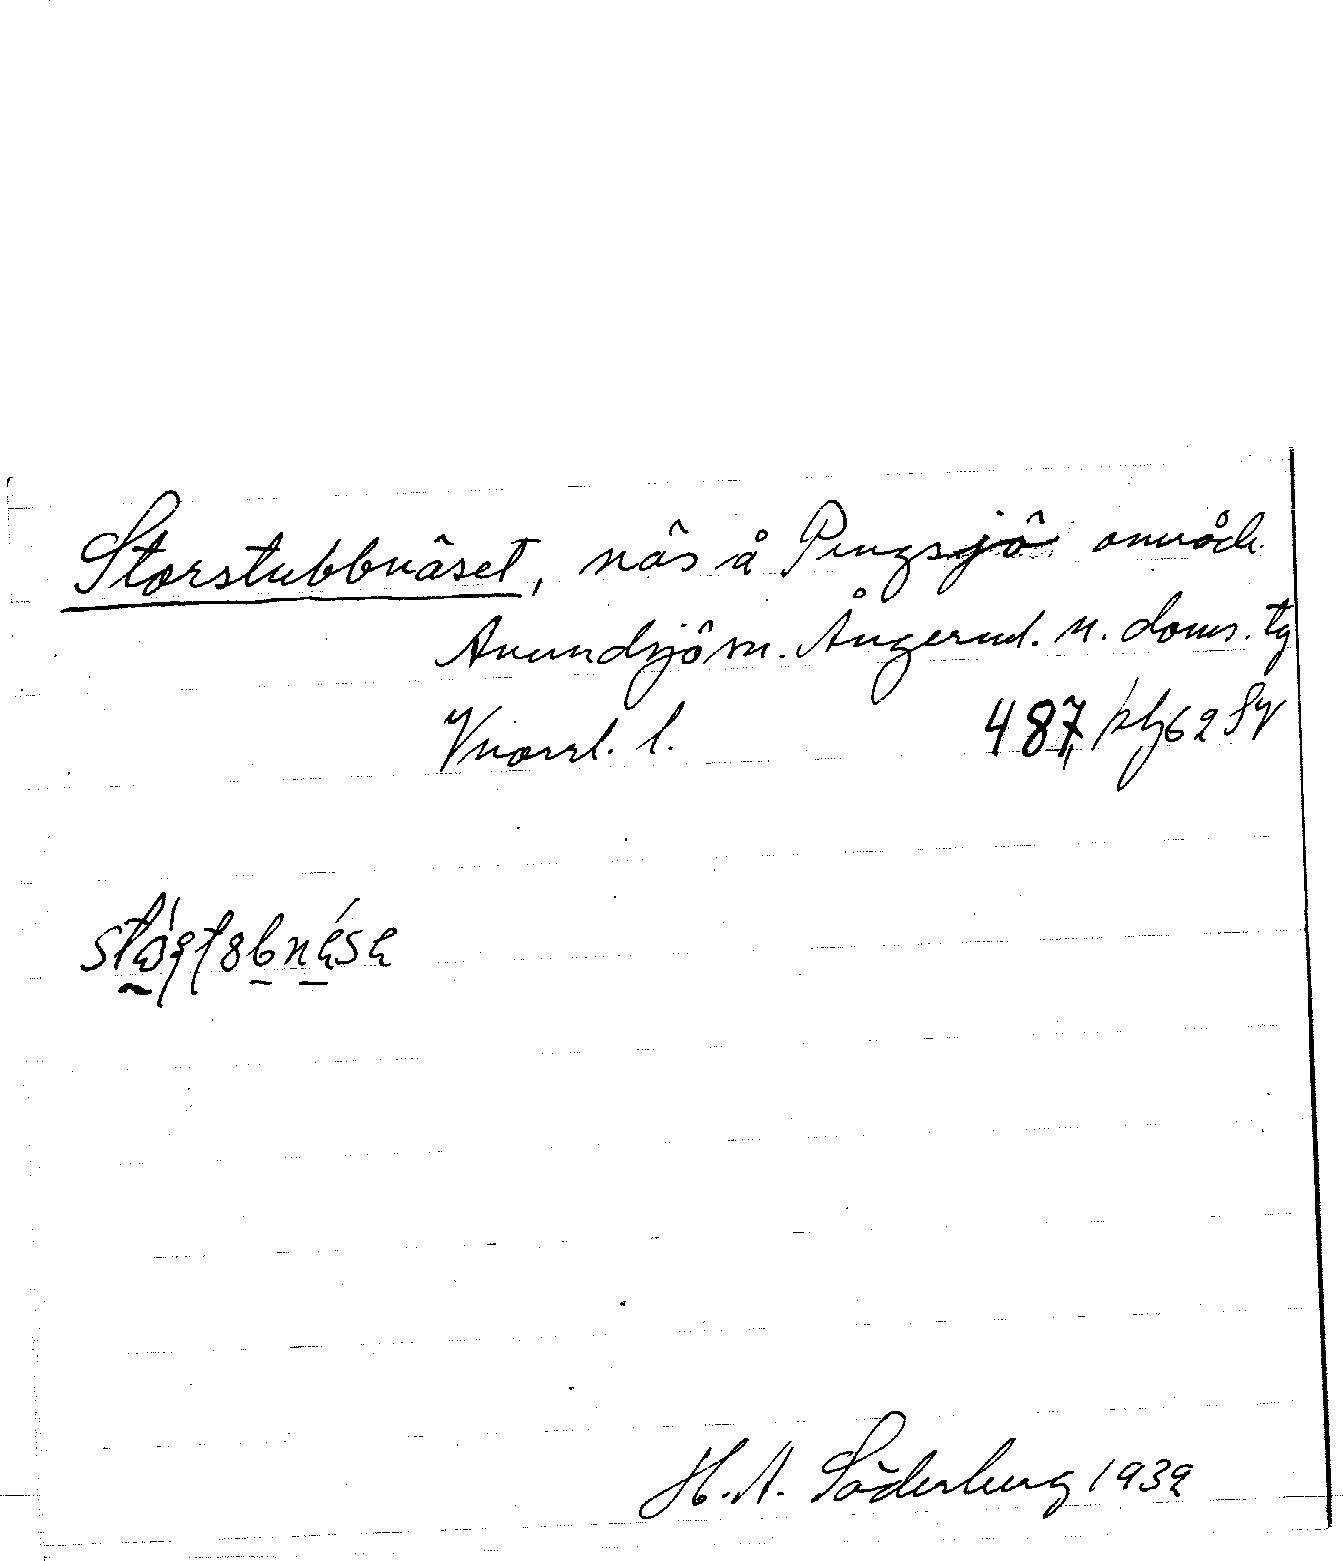 Storstubbnäset, näs å Pengsjö område
Anundsjö sn. Ångerml. n. doms. tg
Vnorrl. l. 487,
H. A. Söderberg 1932